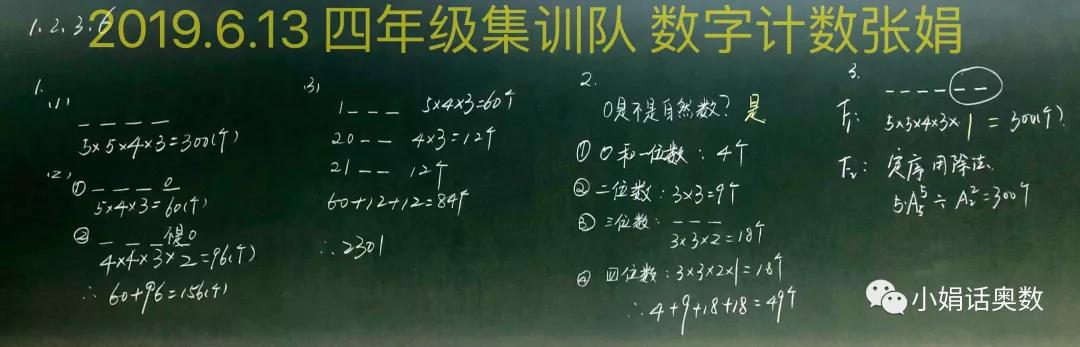 2019.6.13 四年级集训队 数字计数张娟
1.2.3.6
1.
(1)
_ _ _ _
5×5×4×3=300(个)
(2)
① _ _ _ 0
5×4×3=60(个)
② _ _ _ 偶0
4×4×3×2=96(个)
∴ 60+96=156(个)
(3)
1 _ _ _ 5×4×3=60个
20 _ _ 4×3=12个
21 _ _ 12个
60+12+12=84个
∴ 2301
2.
0是不是自然数? 是
① 0和一位数: 4个
② 二位数: 3×3=9个
③ 三位数: _ _ _
3×3×2=18个
④ 四位数: 3×3×2×1=18个
∴ 4+9+18+18=49个
3.
_ _ _ _ _ _
F₁: 5×5×4×3×1=300(个)
F₂: 定序用除法.
5·A₅⁵÷A₂²=300个
小娟话奥数